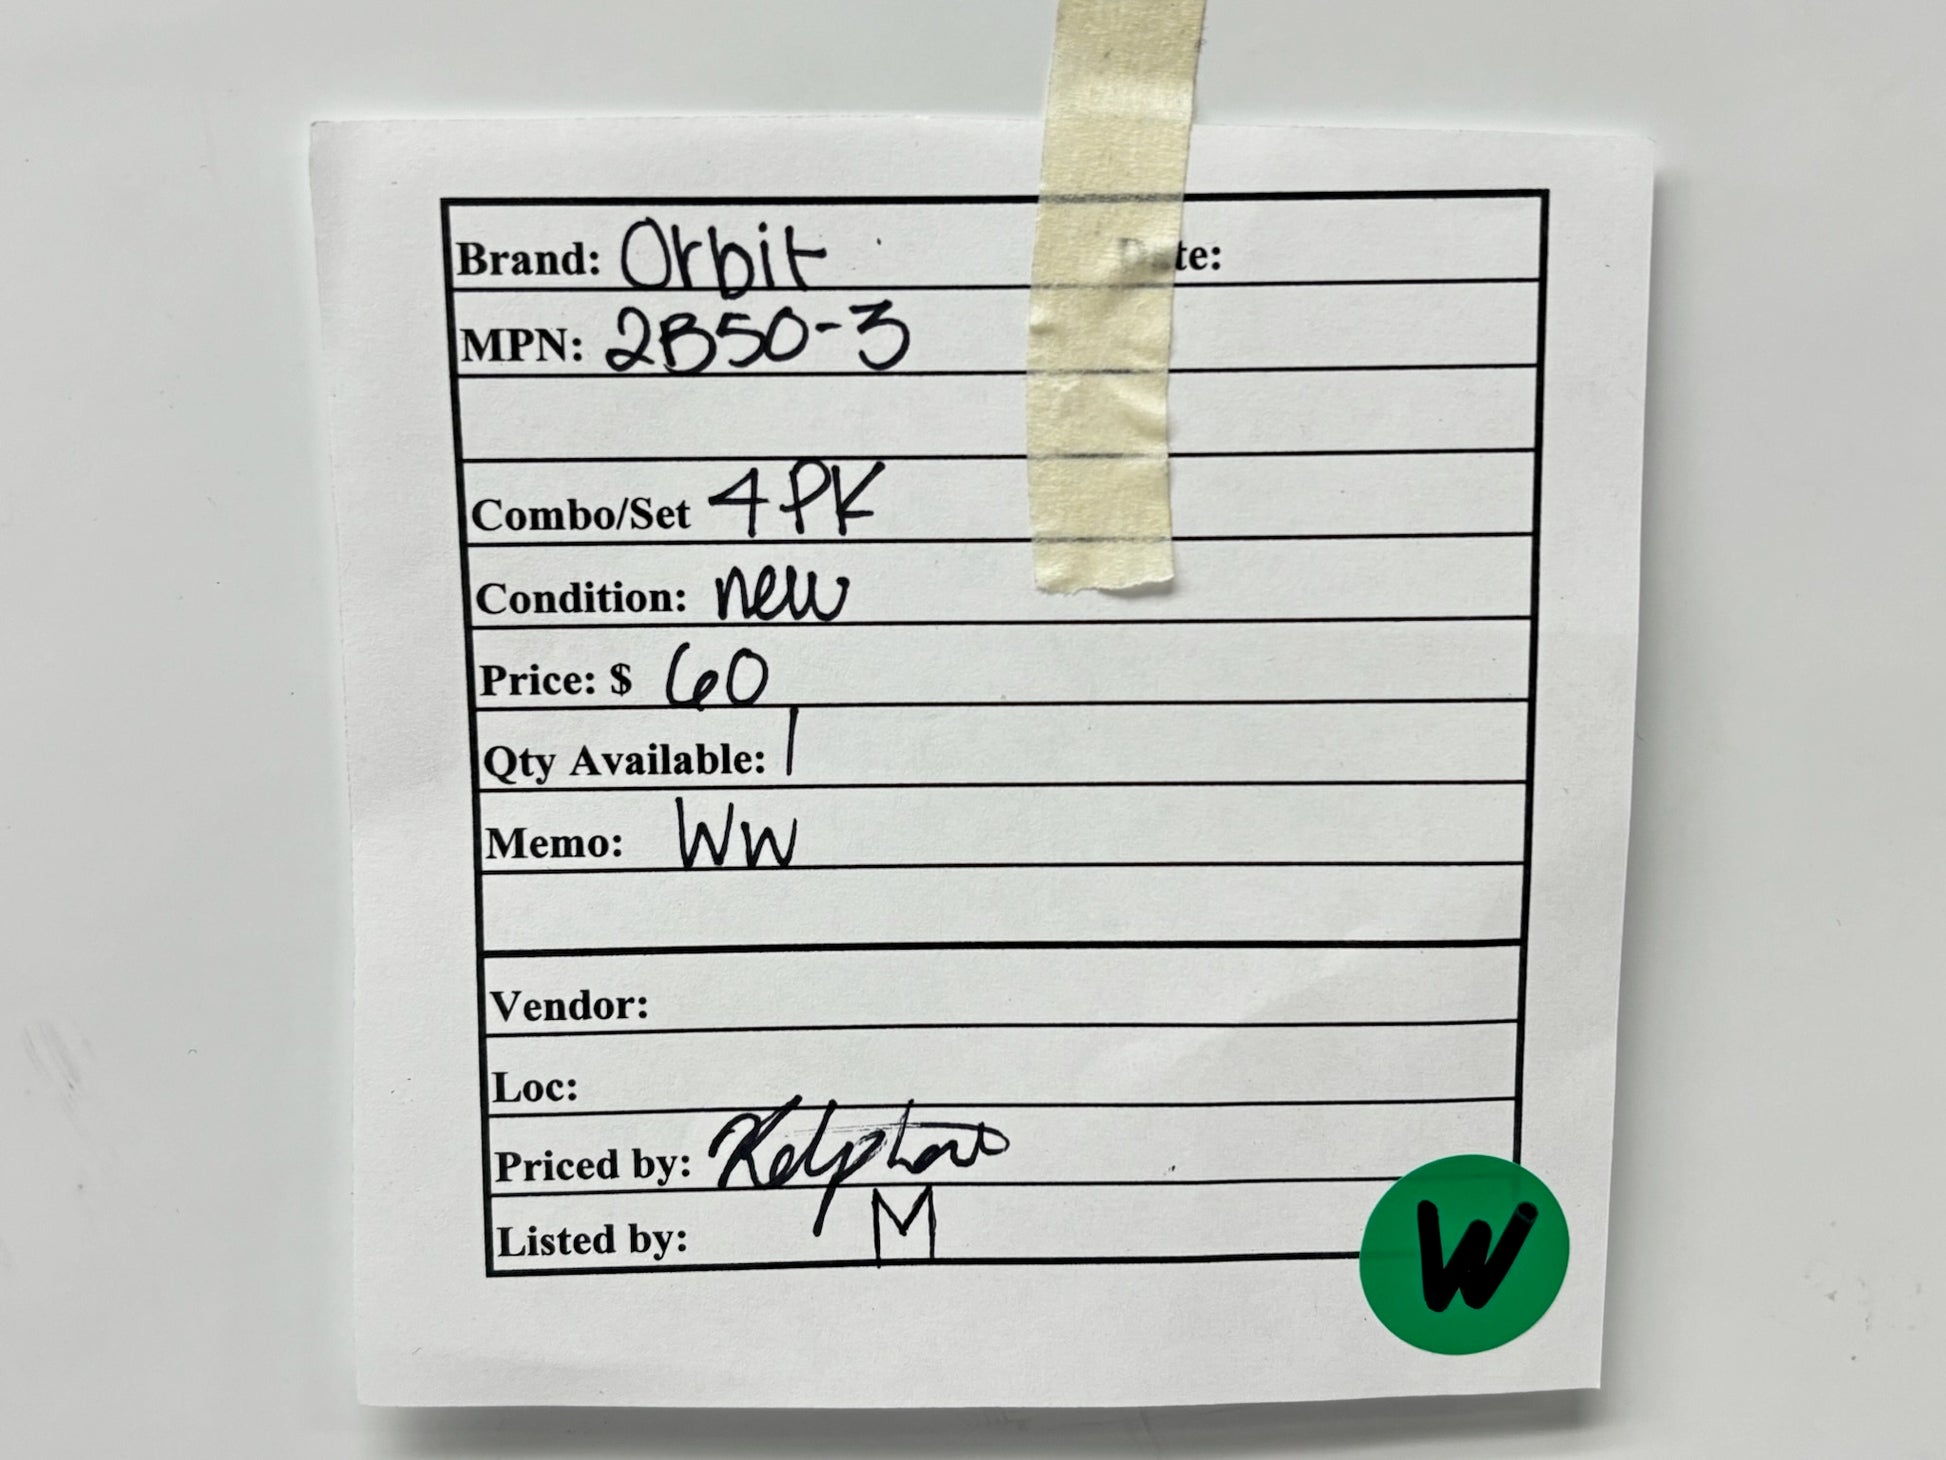 Brand: Orbit Date:
MPN: 2B50-3
Combo/Set 4PK
Condition: new
Price: $ 60
Qty Available: 1
Memo: WW
Vendor:
Loc:
Priced by:
Listed by: M
W